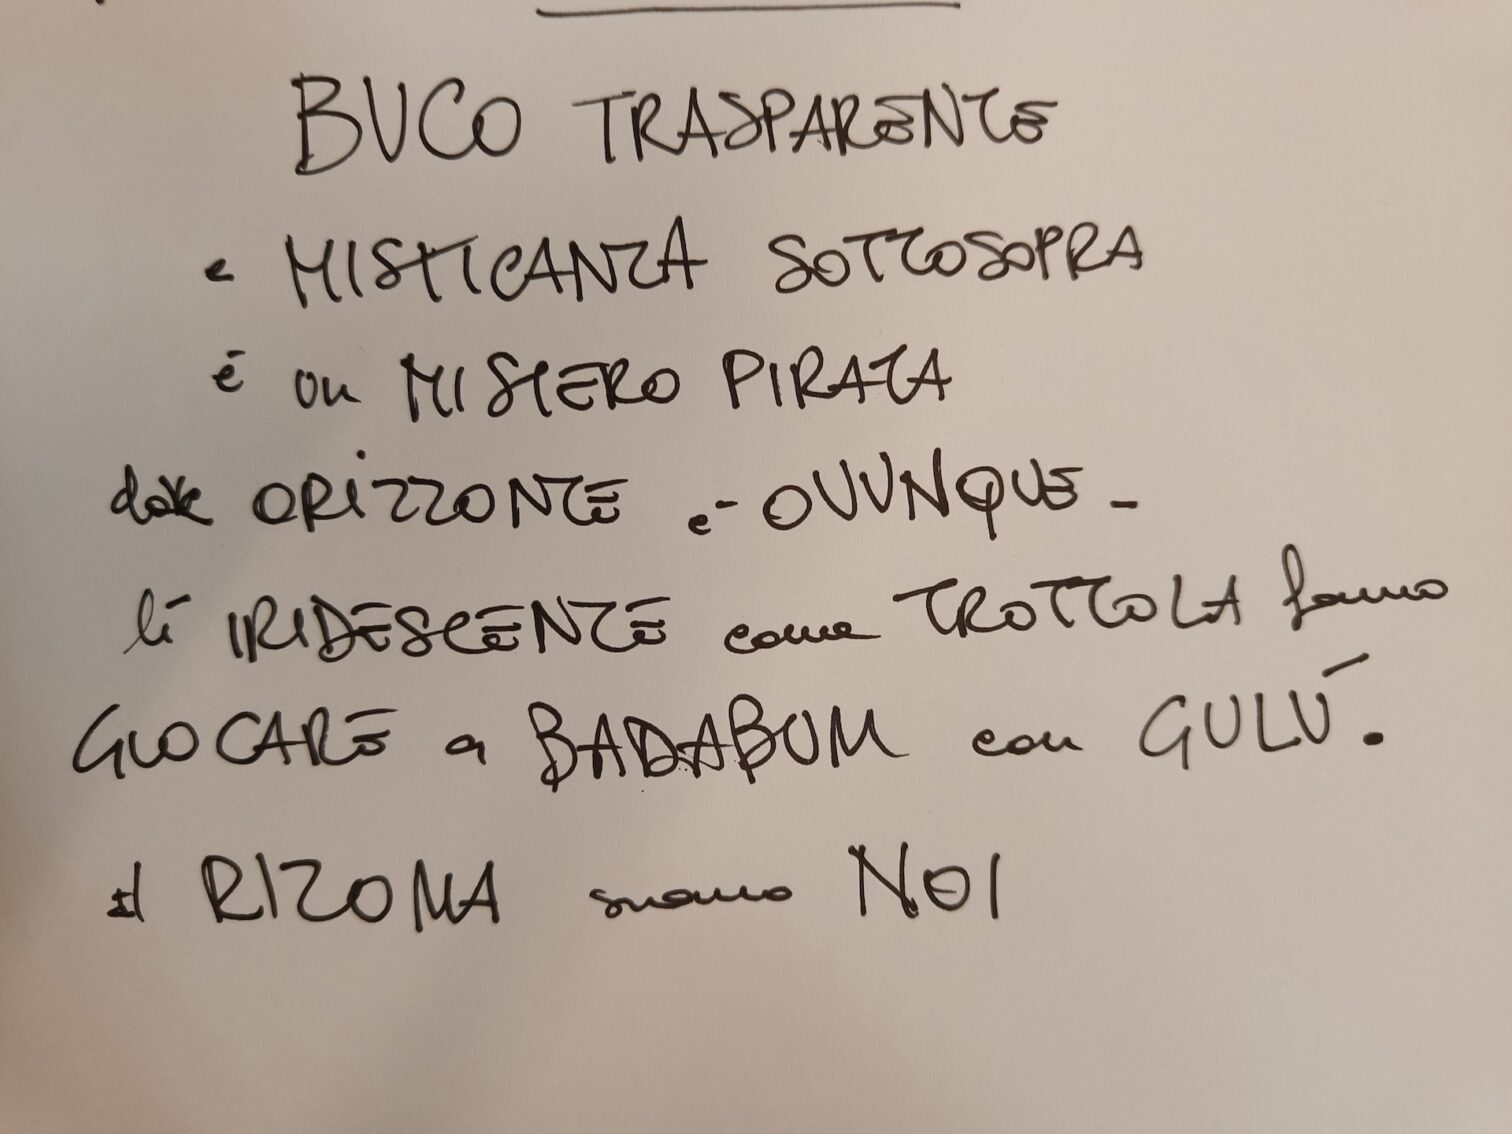 BUCO TRASPARENTE
e MISTICANZA SOTTOSOPRA
è un MISTERO PIRATA
dove ORIZZONTE e- OVUNQUE -
lì IRIDESCENTE come TROTTOLA fanno
GIOCARE a BADABUM con GULÙ.
il RIZOMA siamo NOI